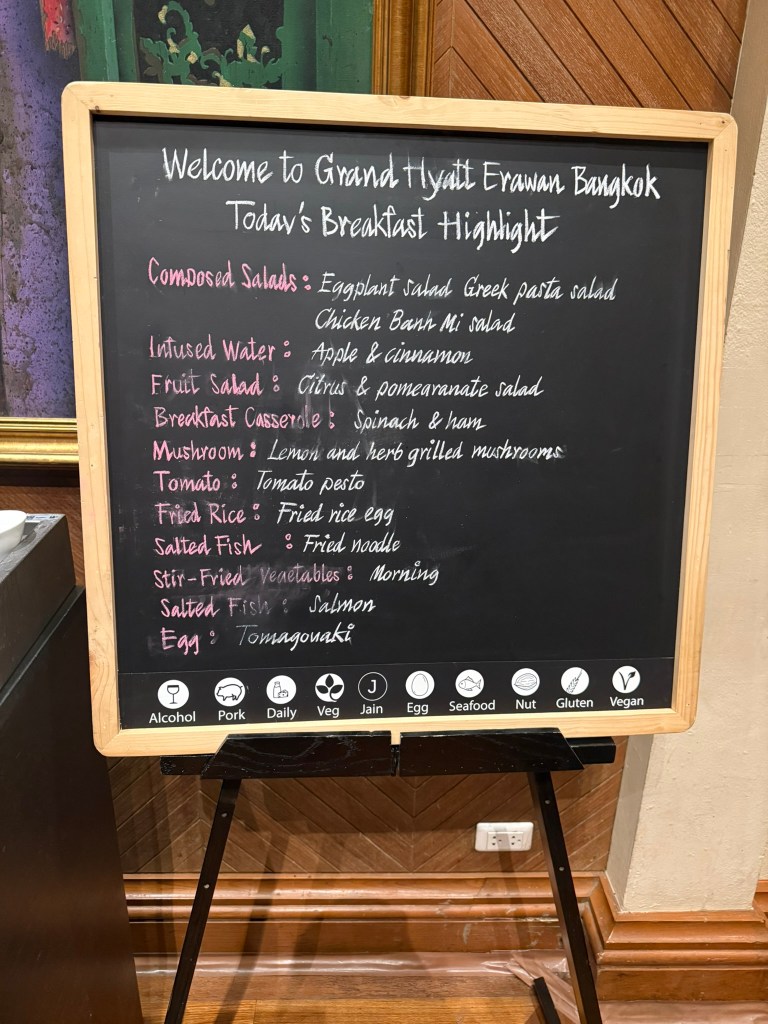 Welcome to Grand Hyatt Erawan Bangkok
Today's Breakfast Highlight
Composed Salads : Eggplant salad Greek pasta salad
Chicken Banh Mi salad
Infused Water : Apple & cinnamon
Fruit Salad : Citrus & pomegranate salad
Breakfast Casserole : Spinach & ham
Mushroom : Lemon and herb grilled mushrooms
Tomato : Tomato pesto
Fried Rice : Fried rice egg
Salted Fish : Fried noodle
Stir-Fried Vegetables : Morning
Salted Fish : Salmon
Egg : Tomagouaki
Alcohol Pork Daily Veg Jain Egg Seafood Nut Gluten Vegan